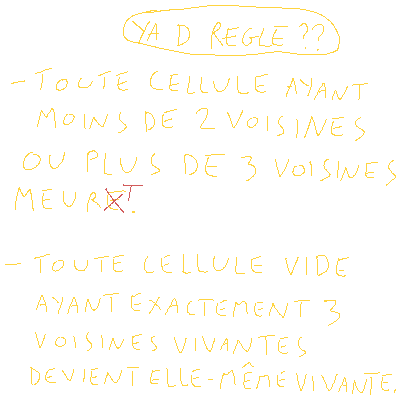 YA D REGLE ??
- TOUTE CELLULE AYANT
MOINS DE 2 VOISINES
OU PLUS DE 3 VOISINES
MEURT.
- TOUTE CELLULE VIDE
AYANT EXACTEMENT 3
VOISINES VIVANTES
DEVIENT ELLE-MÊME VIVANTE.